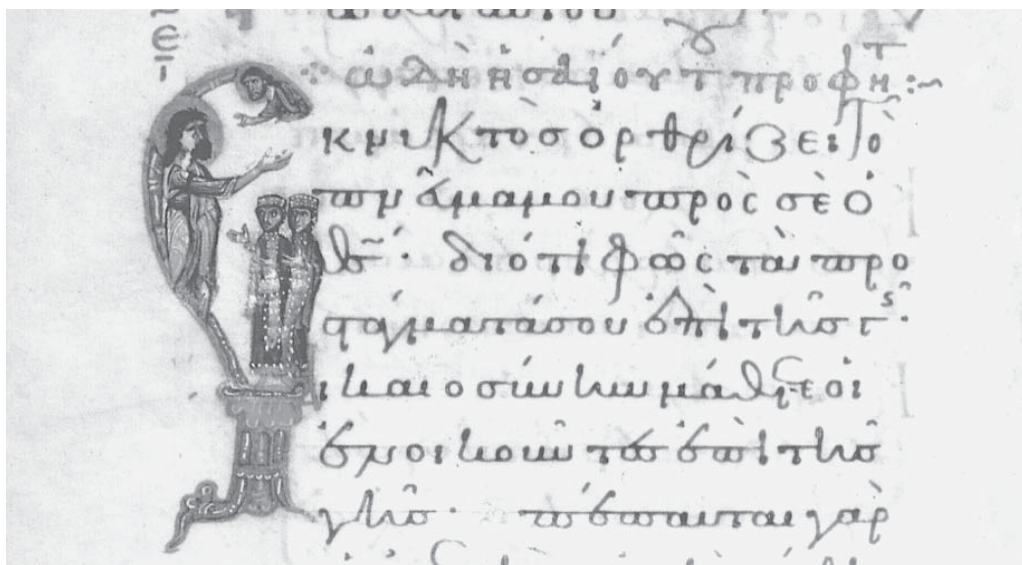 ᾠδὴ ἠσαΐου τ προφητ :~
Ἐκ νυκτὸς ὀρθρίζει τὸ
πνεῦμα μου πρὸς σὲ ὁ
θς· διότι φῶς τὰ προ
στάγματά σου ἐπὶ τῆς γῆς·
δικαιοσύνην μάθετε οἱ
ἐνοικοῦντες ἐπὶ τῆς
γῆς· πέπαυται γὰρ